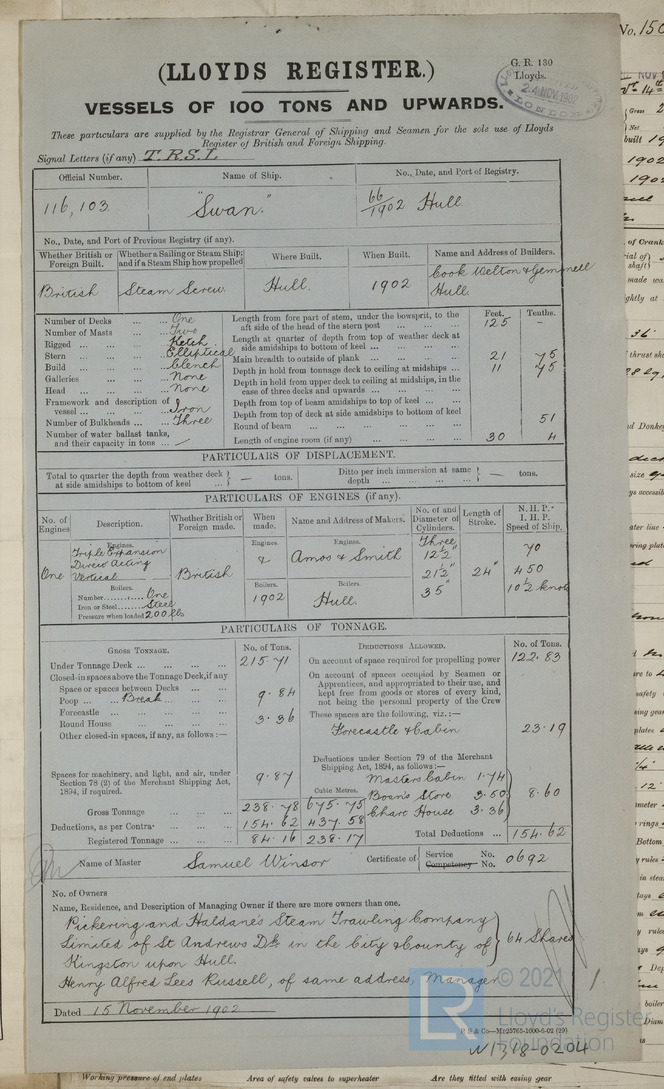 (LLOYDS REGISTER.)
G. R. 130
Lloyds.
24 NOV 1902
VESSELS OF 100 TONS AND UPWARDS.
These particulars are supplied by the Registrar General of Shipping and Seamen for the sole use of Lloyds
Register of British and Foreign Shipping.
Signal Letters (if any) T.R.S.L
Official Number. Name of Ship. No., Date, and Port of Registry.
116,103 "Swan." 66/1902 Hull
No., Date, and Port of Previous Registry (if any).
Whether British or Foreign Built. Whether a Sailing or Steam Ship; and if a Steam Ship how propelled Where Built. When Built. Name and Address of Builders.
British Steam Screw. Hull. 1902 Cook Welton & Gemmell Hull.
Number of Decks ... ... One
Number of Masts ... ... Two
Rigged ... ... ... Ketch
Stern ... ... ... Elliptical
Build ... ... ... Clench
Galleries ... ... None
Head ... ... ... None
Framework and description of vessel ... ... Iron
Number of Bulkheads ... ... Three
Number of water ballast tanks, and their capacity in tons ... —
Feet. Tenths.
Length from fore part of stem, under the bowsprit, to the aft side of the head of the stern post ... ... 125 –
Length at quarter of depth from top of weather deck at side amidships to bottom of keel ... ... ...
Main breadth to outside of plank ... ... ... 21 75
Depth in hold from tonnage deck to ceiling at midships ... 11 45
Depth in hold from upper deck to ceiling at midships, in the case of three decks and upwards ... ... ...
Depth from top of beam amidships to top of keel ... ...
Depth from top of deck at side amidships to bottom of keel
Round of beam ... ... ... ... 51
Length of engine room (if any) ... ... ... 30 4
PARTICULARS OF DISPLACEMENT.
Total to quarter the depth from weather deck at side amidships to bottom of keel ... — tons. Ditto per inch immersion at same depth ... ... — tons.
PARTICULARS OF ENGINES (if any).
No. of Engines. Description. Whether British or Foreign made. When made. Name and Address of Makers. No. of and Diameter of Cylinders. Length of Stroke. N. H. P. I. H. P. Speed of Ship.
Engines. Engines. Engines.
One Triple Expansion Direct Acting Vertical British & Amos & Smith Three 12½" 21½" 35" 24" 70 450 10½ knots
Boilers. Boilers. Boilers.
Number........ One 1902 Hull.
Iron or Steel...... Steel
Pressure when loaded 200 lbs
PARTICULARS OF TONNAGE.
GROSS TONNAGE. No. of Tons. DEDUCTIONS ALLOWED. No. of Tons.
Under Tonnage Deck ... ... ... ... 215.71
On account of space required for propelling power 122.83
Closed-in spaces above the Tonnage Deck, if any
Space or spaces between Decks ... ...
Poop ... ... Break ... ... 9.84
Forecastle ... ... ... ...
Round House ... ... ... 3.36
Other closed-in spaces, if any, as follows:—
On account of spaces occupied by Seamen or Apprentices, and appropriated to their use, and kept free from goods or stores of every kind, not being the personal property of the Crew
These spaces are the following, viz.:—
Forecastle & Cabin 23.19
Deductions under Section 79 of the Merchant Shipping Act, 1894, as follows:—
Spaces for machinery, and light, and air, under Section 78 (2) of the Merchant Shipping Act, 1894, if required. 9.87
Cubic Metres.
Masters Cabin 1.74
Bosn's Store 3.50
Chart House 3.36
8.60
Gross Tonnage ... ... ... 238.78 675.75
Deductions, as per Contra ... ... ... 154.62 437.58
Registered Tonnage ... ... ... 84.16 238.17
Total Deductions ... ... 154.62
Name of Master Samuel Winsor Certificate of Service No. 0692
Competency No.
No. of Owners
Name, Residence, and Description of Managing Owner if there are more owners than one.
Pickering and Haldane's Steam Trawling Company
Limited of St Andrews Dk in the City & County of 64 Shares
Kingston upon Hull.
Henry Alfred Lees Russell, of same address, Manager
Dated 15 November 1902
© 2021
LR
Lloyd's Register
Foundation
W1318-0204
Working pressure of end plates Area of safety valves to superheater Are they fitted with easing gear